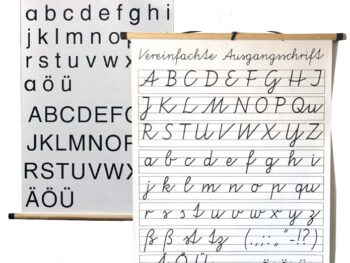 a b c d e f g h i
j k l m n o p q r
s t u v w x
a ö ü
A B C D E F G
J K L M N O P
R S T U V W X
Ä Ö Ü
Vereinfachte Ausgangsschrift
A B C D E F G H I
J K L M N O P Qu
R S T U V W X Y Z
a b c d e f g h i
j k l m n o p qu
r s t u v w x y z
ß ß st tz (.,:;„“-!?)
Ä Ö Ü